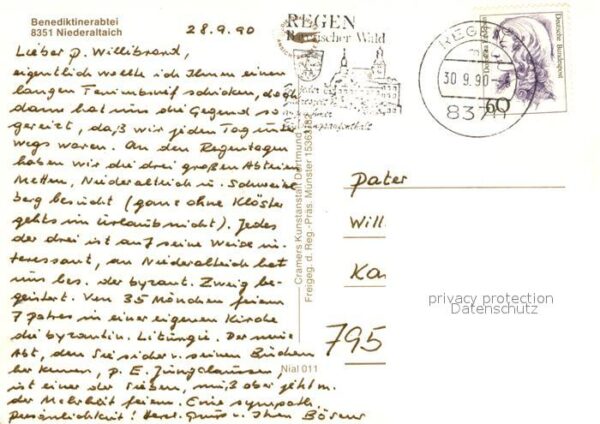 Benediktinerabtei
8351 Niederaltaich
28.9.90
Lieber p. Willibrand,
eigentlich wollte ich Ihnen einen
langen Ferienbrief schicken, doch
dann hat uns die Gegend so
gereizt, daß wir jeden Tag unter
wegs waren. An den Regentagen
haben wir die drei großen Abteien
Metten, Niederalteich u. Schweikl
berg besucht (ganz ohne Klöster
gehts im Urlaub nicht). Jedes
der drei ist auf seine Weise in-
teressant, in Niederalteich hat
uns bes. der byzant. Zweig be-
geistert. Von 35 Mönchen feiern
7 patres in einer eigenen Kirche
die byzantin. Liturgie. Der neue
Abt, den Sie sicher v. seinen Büchern
her kennen, p. E. Jungclaussen,
ist einer der sieben, muß aber jetzt m.
der Mehrheit feiern. Eine sympath.
Persönlichkeit! Herzl. Gruß v. Ihren
Cramers Kunstanstalt Dortmund
Freigeg. d. Reg.-Präs. Münster
Nial 011
REGEN
Bayerischer Wald
REGEN
30.9.90
8370
Deutsche Bundespost
60
Pater
Will
Ka
795
privacy protection
Datenschutz